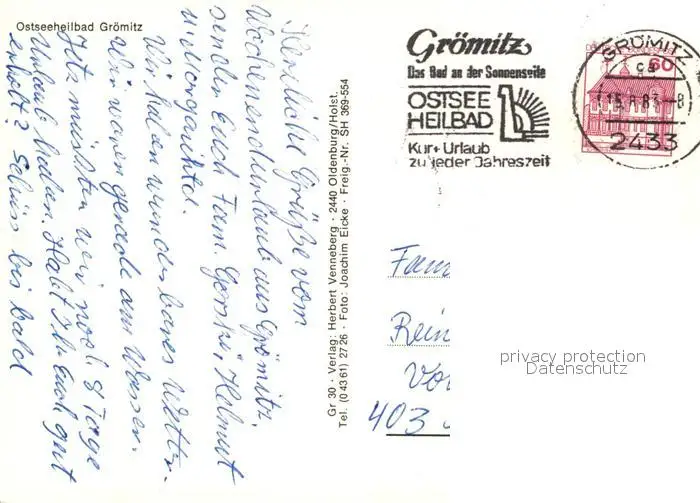 Ostseeheilbad Grömitz
Herzliche Grüße vom
Wochenendurlaub aus Grömitz,
senden Euch Fam. Gorski, Helmut
u.
Wir haben wunderbares Wetter.
Wir waren gerade am Wasser.
Jetz müßten wir noch 8 Tage
Urlaub haben. Habt Ihr Euch gut
erholt? Schüss bis bald
Gr 30 · Verlag: Herbert Venneberg · 2440 Oldenburg/Holst.
Tel. (0 43 61) 27 26 · Foto: Joachim Eicke · Freig.-Nr. SH 369-554
Grömitz
Das Bad an der Sonnenseite
OSTSEE
HEILBAD
Kur + Urlaub
zu jeder Jahreszeit
GRÖMITZ
60
2433
Fam
Rein
403
privacy protection
Datenschutz